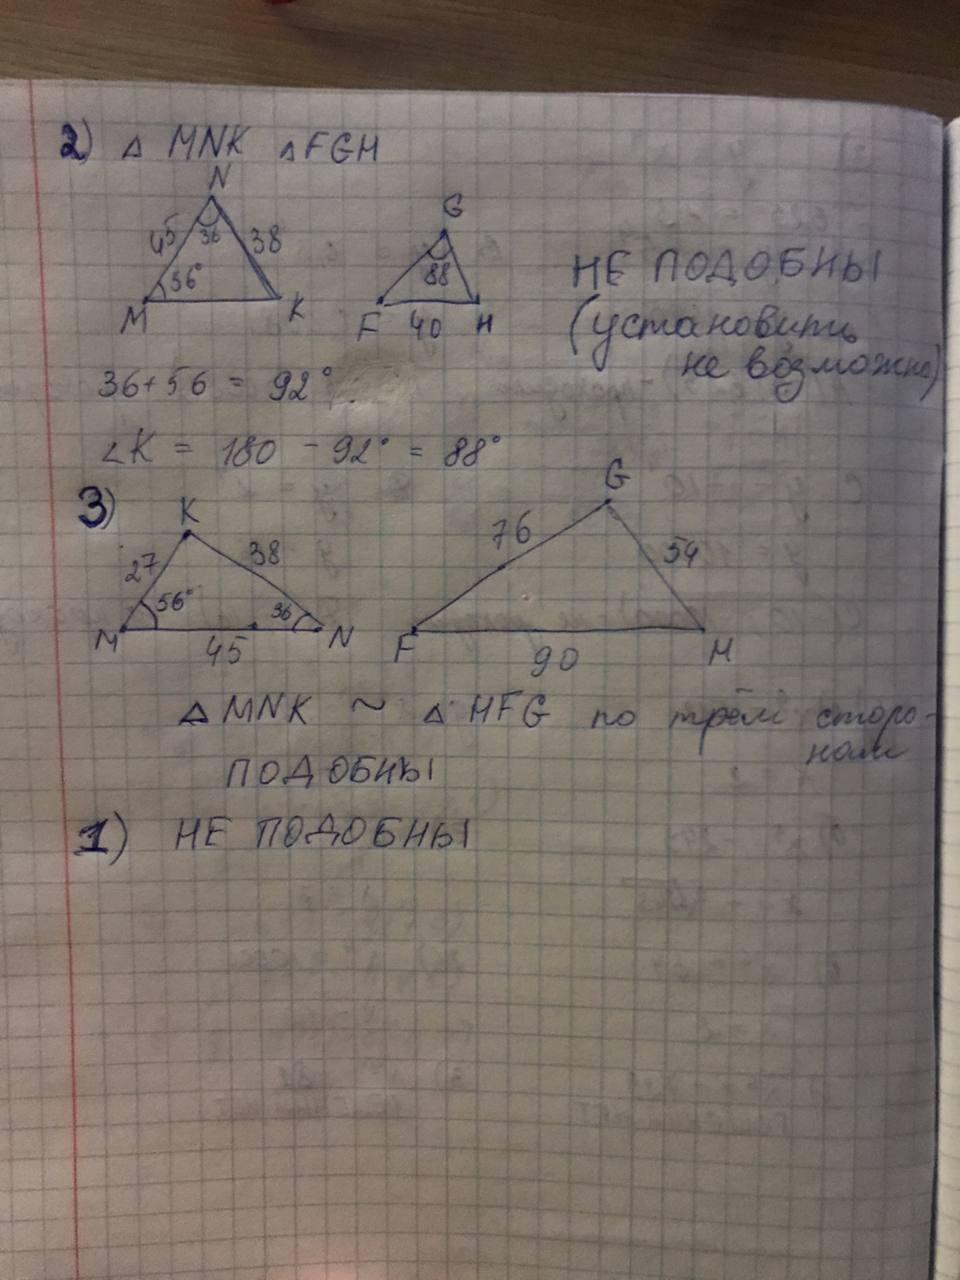 2) Δ MNK Δ FGH
N
45 36 38
56°
M K
G
88
F 40 H
НЕ ПОДОБНЫ
(установить
не возможно)
36+56 = 92°
∠K = 180 - 92° = 88°
3)
K
27 38
56° 36
M 45 N
G
76 54
F 90 H
Δ MNK ~ Δ HFG по трём сторо-
нам
ПОДОБНЫ
1) НЕ ПОДОБНЫ